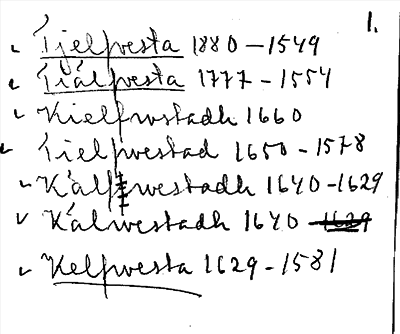 1.
Tjelpvesta 1880 – 1549
Tiälpvesta 1777 – 1554
Kielfwstadh 1660
Tielpvestad 1650 – 1578
Kälfwestadh 1640 – 1629
Kälwestadh 1640 – 1629
Kelpvesta 1629 – 1581